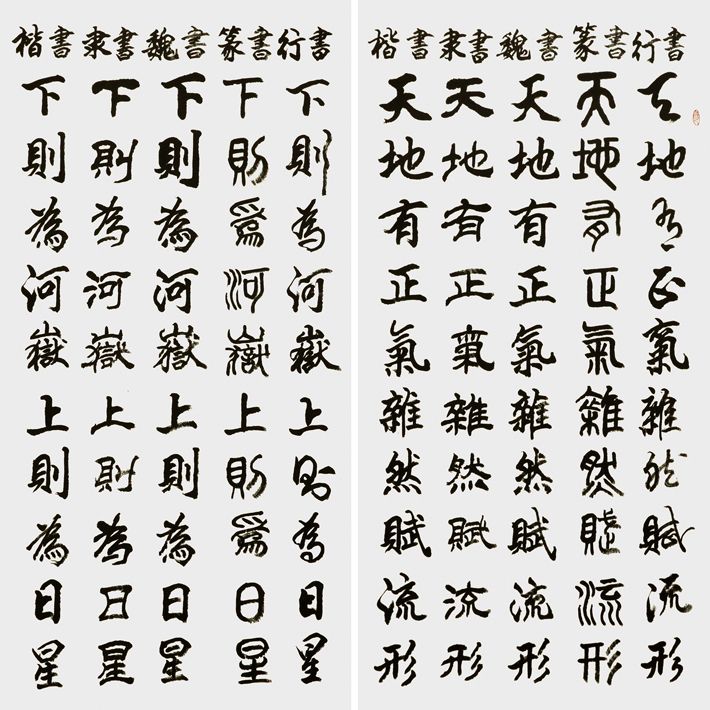 楷書 隶書 魏書 篆書 行書
天地有正氣雜然賦流形
天地有正氣雜然賦流形
天地有正氣雜然賦流形
天地有正氣雜然賦流形
天地有正氣雜然賦流形
楷書 隶書 魏書 篆書 行書
下則為河嶽上則為日星
下則為河嶽上則為日星
下則為河嶽上則為日星
下則為河嶽上則為日星
下則為河嶽上則為日星